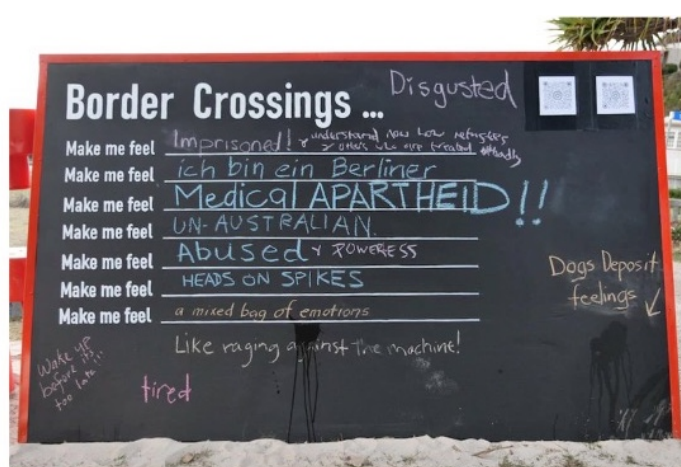 Border Crossings ... Disgusted
Make me feel Imprisoned! & understand now how refugees
& others who are treated badly
Make me feel ich bin ein Berliner
Make me feel Medical APARTHEID!!
Make me feel UN-AUSTRALIAN.
Make me feel Abused & POWERLESS
Make me feel HEADS ON SPIKES
Make me feel a mixed bag of emotions
Like raging against the machine!
Dogs Deposit
feelings ↙
Wake up
before its
too late!!!
tired